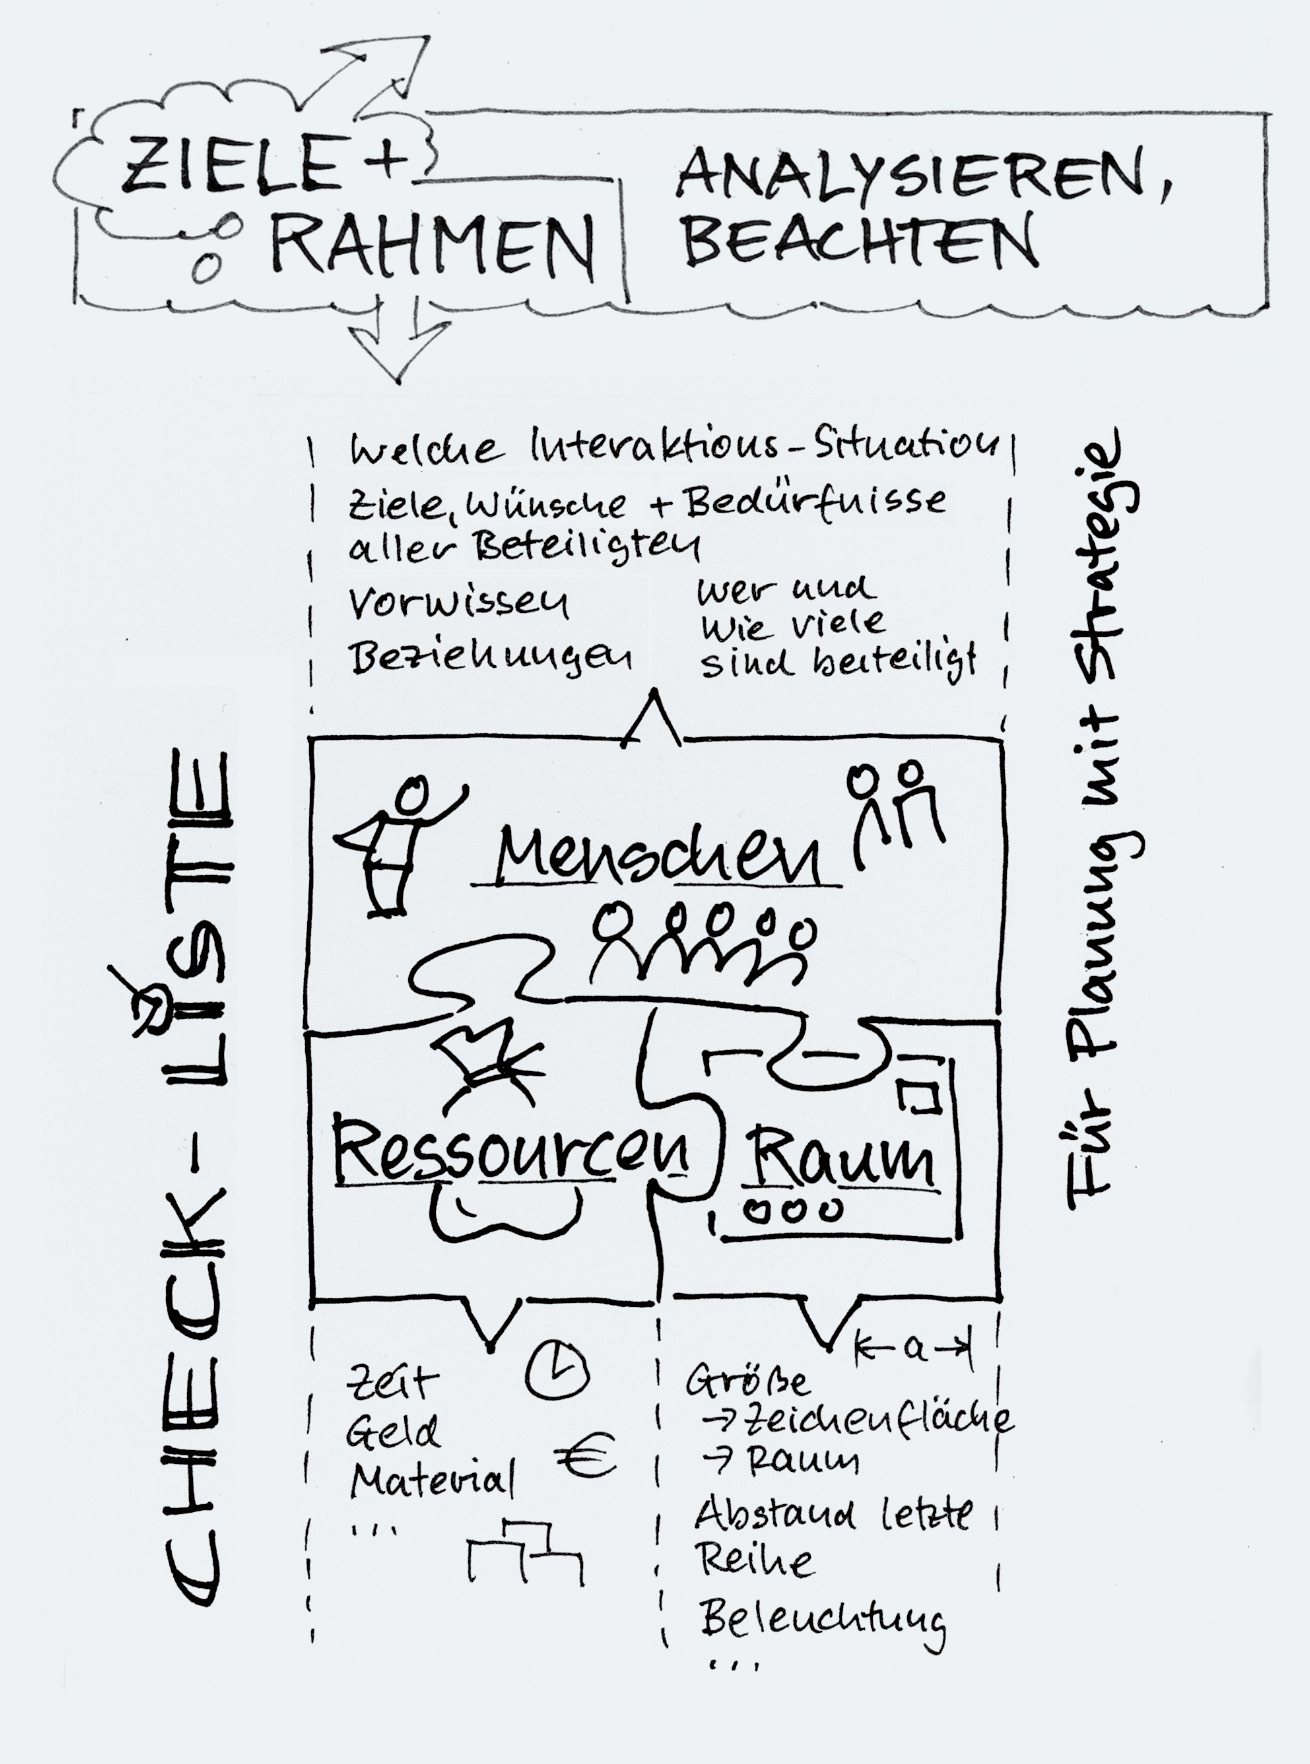 ZIELE +
RAHMEN
ANALYSIEREN,
BEACHTEN
Welche Interaktions-Situation
Ziele, Wünsche + Bedürfnisse
aller Beteiligten
Vorwissen
Beziehungen
wer und
wie viele
sind beteiligt
Für Planung mit Strategie
CHECK-LISTE
Menschen
Ressourcen
Raum
Zeit
Geld
€
Material
...
←a→
Größe
→ Zeichenfläche
→ Raum
Abstand letzte
Reihe
Beleuchtung
...